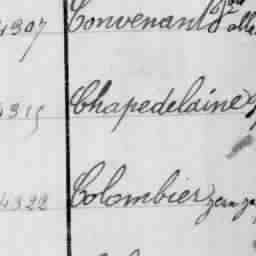 4307 Convenant
4315 Chapedelaine
4322 Colombier